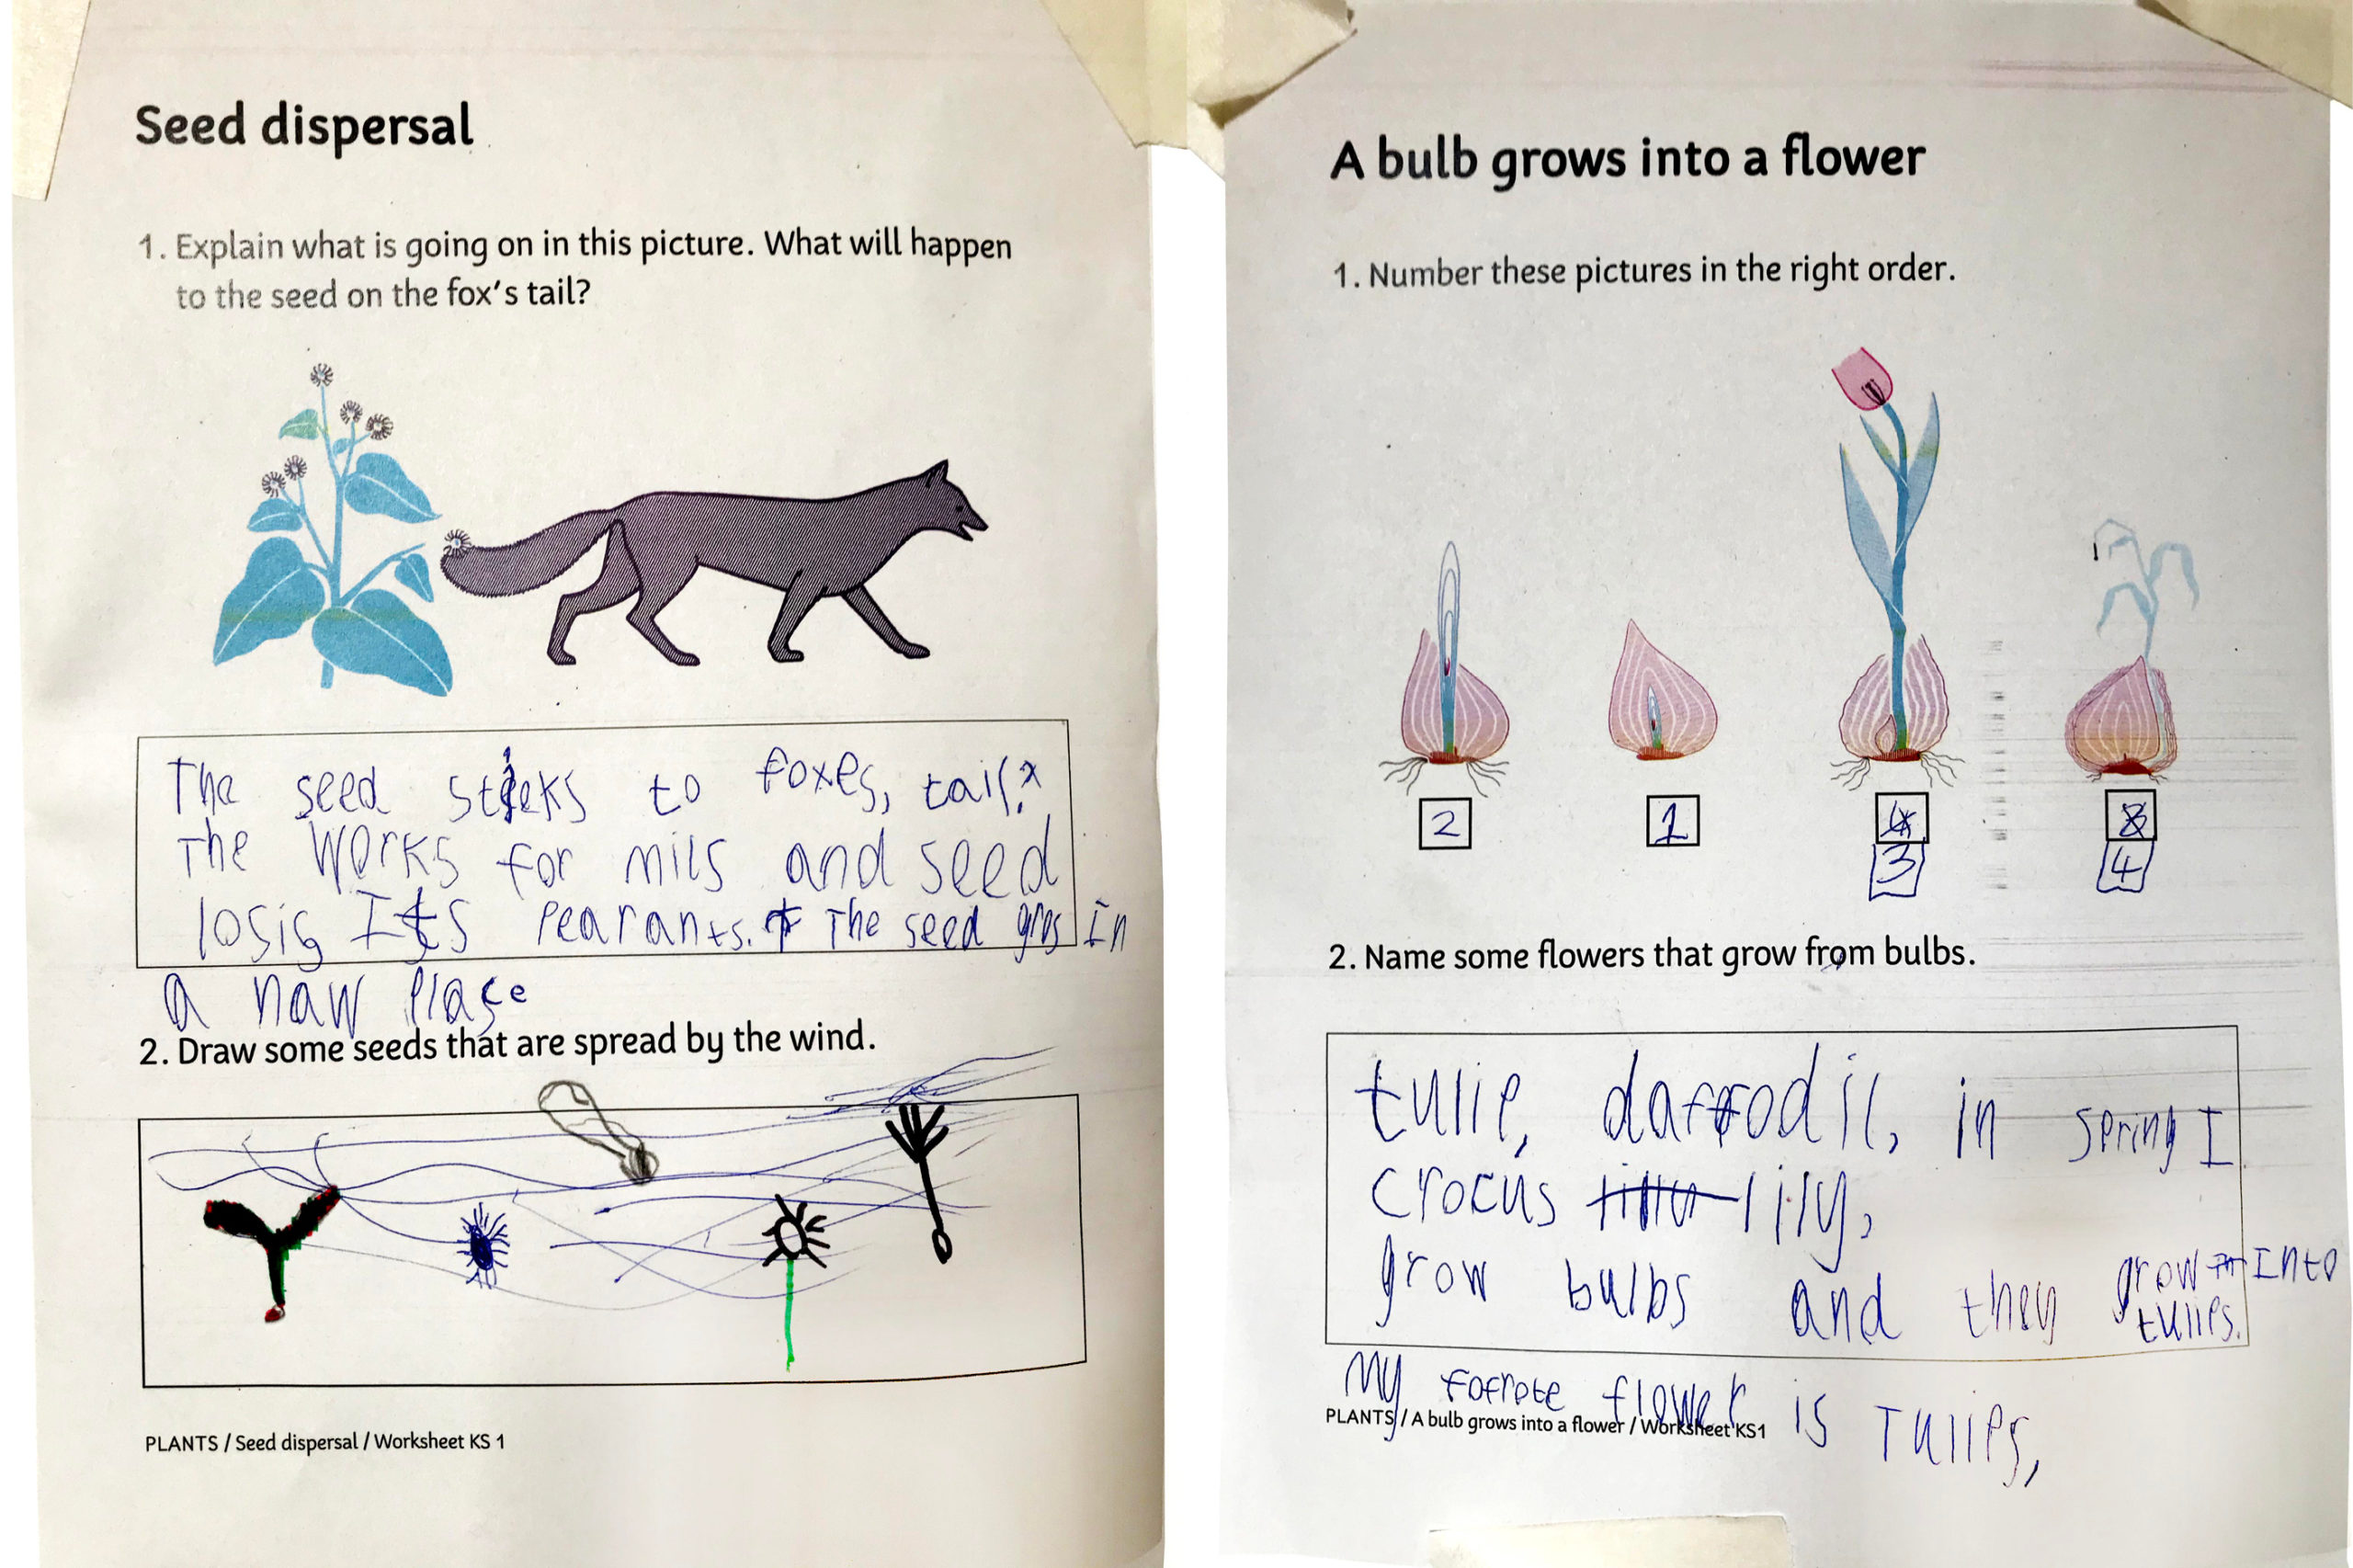 Seed dispersal
1. Explain what is going on in this picture. What will happen
to the seed on the fox's tail?
The seed sticks to foxes, tail.
The works for mils and seed
losig Its pearants. The seed gros In
a naw place
2. Draw some seeds that are spread by the wind.
PLANTS / Seed dispersal / Worksheet KS 1
A bulb grows into a flower
1. Number these pictures in the right order.
2 1 4 3
3 4
2. Name some flowers that grow from bulbs.
tulip, daffodil, in spring I
crocus lily,
grow bulbs and they grow Into
tulips.
My fofrote flower is Tulips,
PLANTS / A bulb grows into a flower / Worksheet KS1